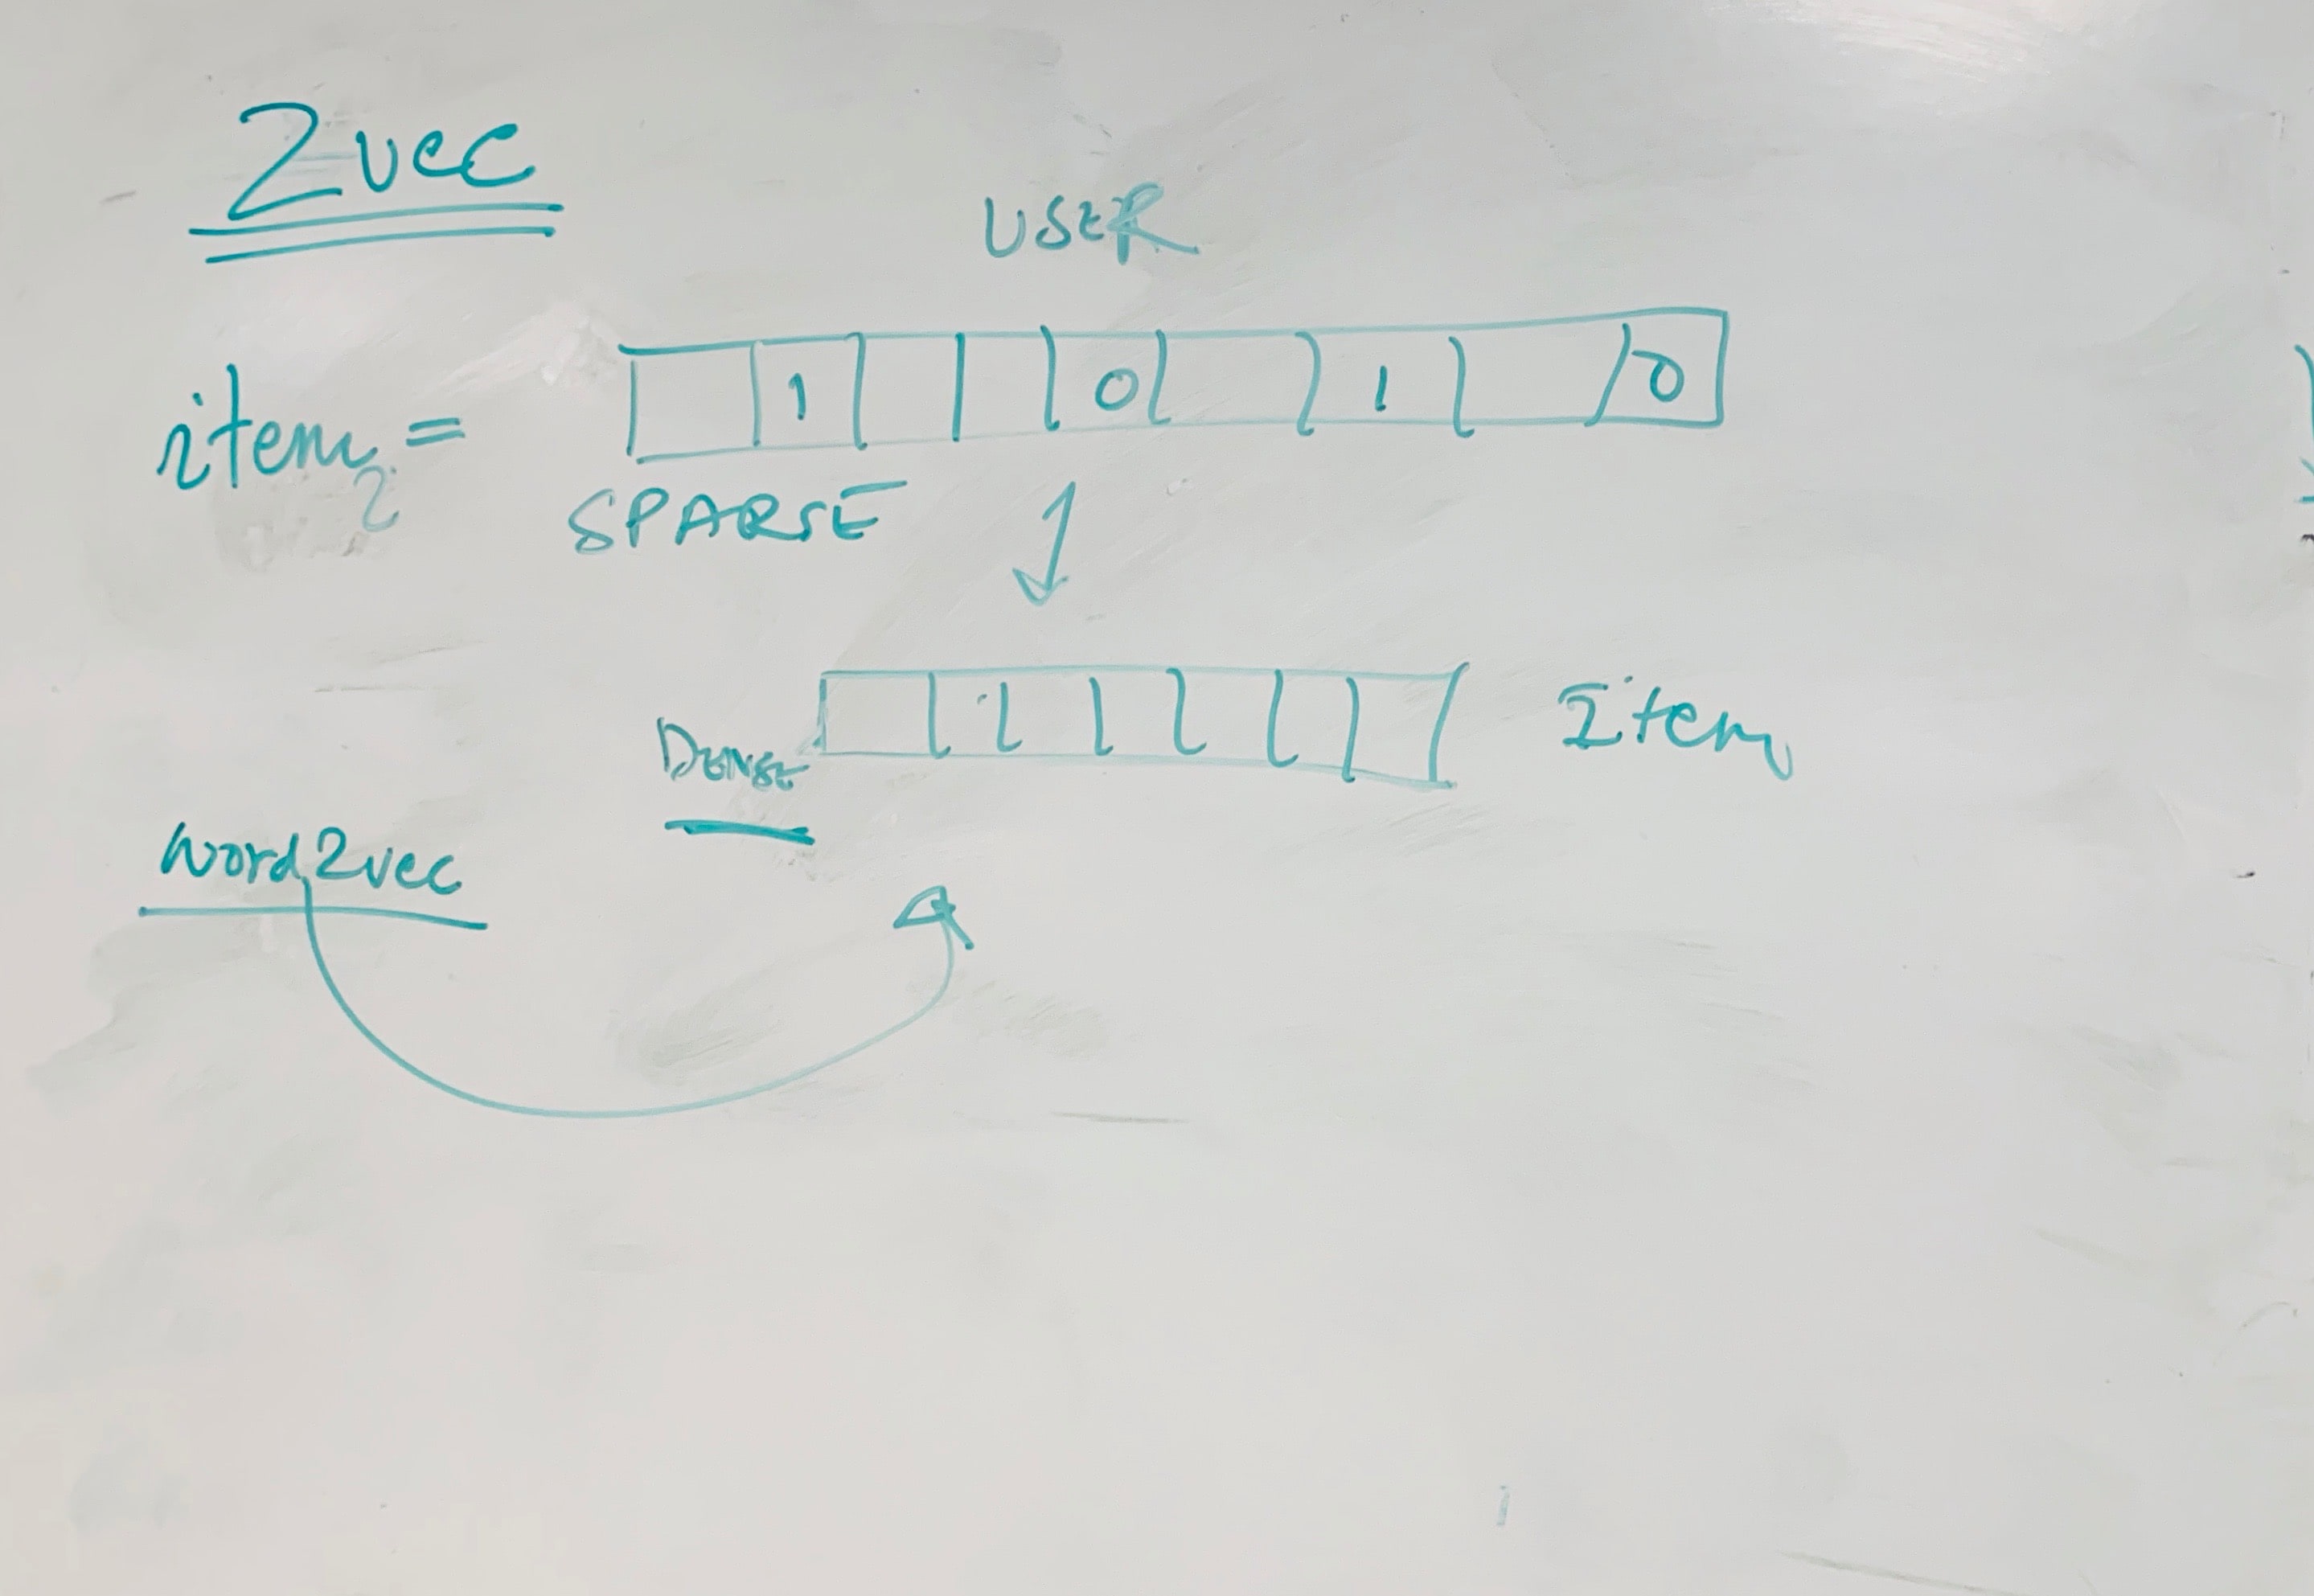 2vec
USER
item2 = 1 0 1 0
SPARSE
DENSE
Item
Word2vec